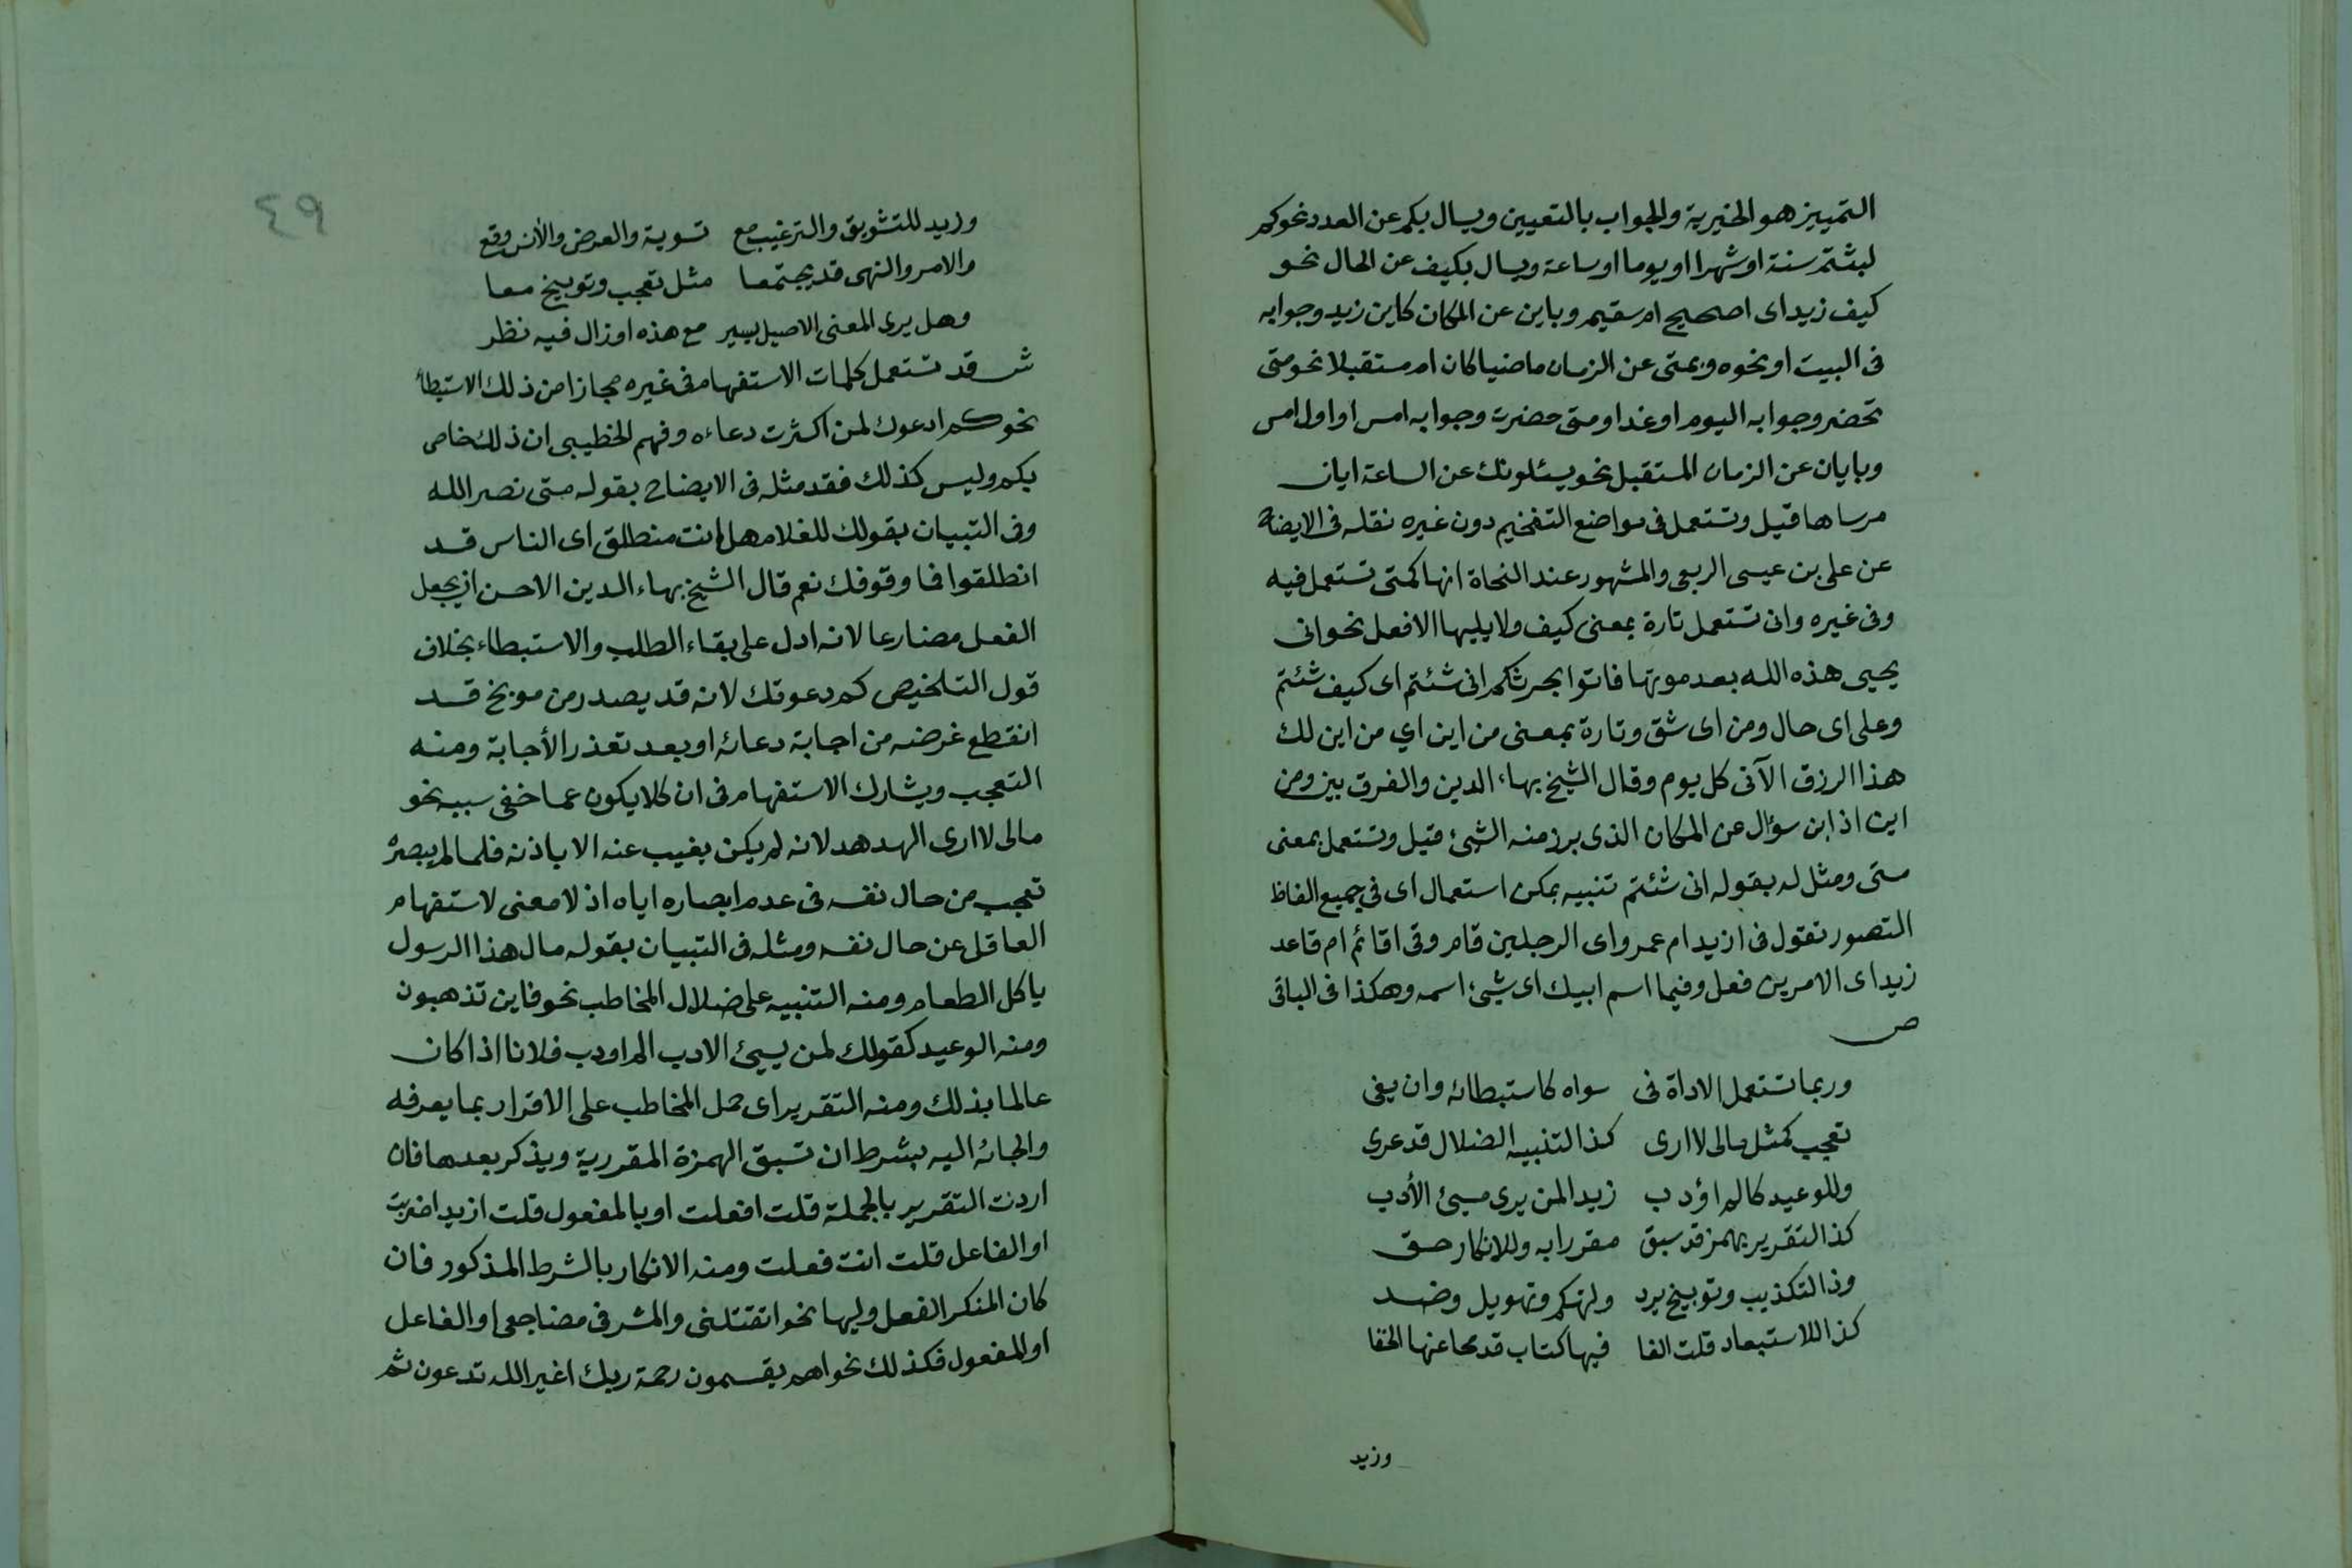 التمييز هو الخيرية والجواب بالتعيين ويسال بكم عن العدد نحو كم
لبثتم سنة او شهرا او يوما او ساعة ويسال بكيف عن الحال نحو
كيف زيد اى اصحيح ام سقيم وباين عن المكان كاين زيد وجوابه
فى البيت او نحوه وبمتى عن الزمان ماضيا كان ام مستقبلا نحو متى
تحضر وجوابه اليوم او غدا ومتى حضرت وجوابه امس او اول امس
وبايان عن الزمان المستقبل نحو يسئلونك عن الساعة ايان
مرساها قيل وتستعمل فى مواضع التفخيم دون غيره نقله فى الايضاح
عن على بن عيسى الربعى والمشهور عند النحاة انها كمتى تستعمل فيه
وفى غيره وانى تستعمل تارة بمعنى كيف ولا يليها الا فعل نحو انى
يحيى هذه الله بعد موتها فاتوا بحرثكم انى شئتم اى كيف شئتم
وعلى اى حال ومن اى شق وتارة بمعنى من اين اي من اين لك
هذا الرزق الآتى كل يوم وقال الشيخ بهاء الدين والفرق بين ومن
اين اذ اين سؤال عن المكان الذى برز منه الشئ قيل وتستعمل بمعنى
متى ومثل له بقوله انى شئتم تنبيه يمكن استعمال اى في جميع الفاظ
التصور تقول فى ازيد ام عمرو اى الرجلين قام وفى اقائم ام قاعد
زيد اى الامرين فعل وفيما اسم ابيك اى شئ اسمه وهكذا فى الباقى
ص
وربما تستعمل الاداة فى سواه كاستبطائه وان يفى
تعجب كمثل مالى لا ارى كذا التنبيه الضلال قد عرى
وللوعيد كالم اؤدب زيدا لمن يرى مسئ الأدب
كذا التقرير بهمز قد سبق مقررا به وللانكار حق
وذا لتكذيب وتوبيخ يرد ولتهكم وتهويل وضد
كذا للاستبعاد قلت الفا فيها كتاب قد محا عنها الخفا
وزيد
٤٩
وزيد للتشويق والترغيب مع تسوية والعرض والأنس وقع
والامر والنهى قد يجتمعا مثل تعجب وتوبيخ معا
وهل يرى المعنى الاصيل يسير مع هذه او زال فيه نظر
ش قد تستعمل كلمات الاستفهام فى غيره مجازا من ذلك الاستبطأ
نحو كم ادعوك لمن اكثرت دعاءه وفهم الخطيبى ان ذلك خاص
بكم وليس كذلك فقد مثله فى الايضاح بقوله متى نصر الله
وفى التبيان بقولك للغلام هل انت منطلق اى الناس قد
انطلقوا فما وقوفك نعم قال الشيخ بهاء الدين الاحسن ان يجعل
الفعل مضارعا لانه ادل على بقاء الطلب والاستبطاء بخلاف
قول التلخيص كم دعوتك لانه قد يصدر من موبخ قد
انقطع غرضه من اجابة دعائه او بعد تعذر الأجابة ومنه
التعجب ويشارك الاستفهام فى ان كلا يكون عما خفى سببه نحو
مالى لا ارى الهدهد لانه لم يكن يغيب عنه الا باذنه فلما لم يبصره
تعجب من حال نفسه فى عدم ابصاره اياه اذ لا معنى لاستفهام
العاقل عن حال نفسه ومثله فى التبيان بقوله مال هذا الرسول
ياكل الطعام ومنه التنبيه على ضلال المخاطب نحو فاين تذهبون
ومنه الوعيد كقولك لمن يسيئ الادب الم اودب فلانا اذا كان
عالما بذلك ومنه التقرير اى حمل المخاطب على الاقرار بما يعرفه
والجائه اليه بشرط ان تسبق الهمزة المقررية ويذكر بعدها فان
اردت التقرير بالجملة قلت افعلت او بالمفعول قلت ازيدا ضربت
او الفاعل قلت انت فعلت ومنه الانكار بالشرط المذكور فان
كان المنكر الفعل وليها نحو اتقتلنى والمشرفى مضاجعى او الفاعل
او المفعول فكذلك نحو اهم يقسمون رحمة ربك اغير الله تدعون ثم